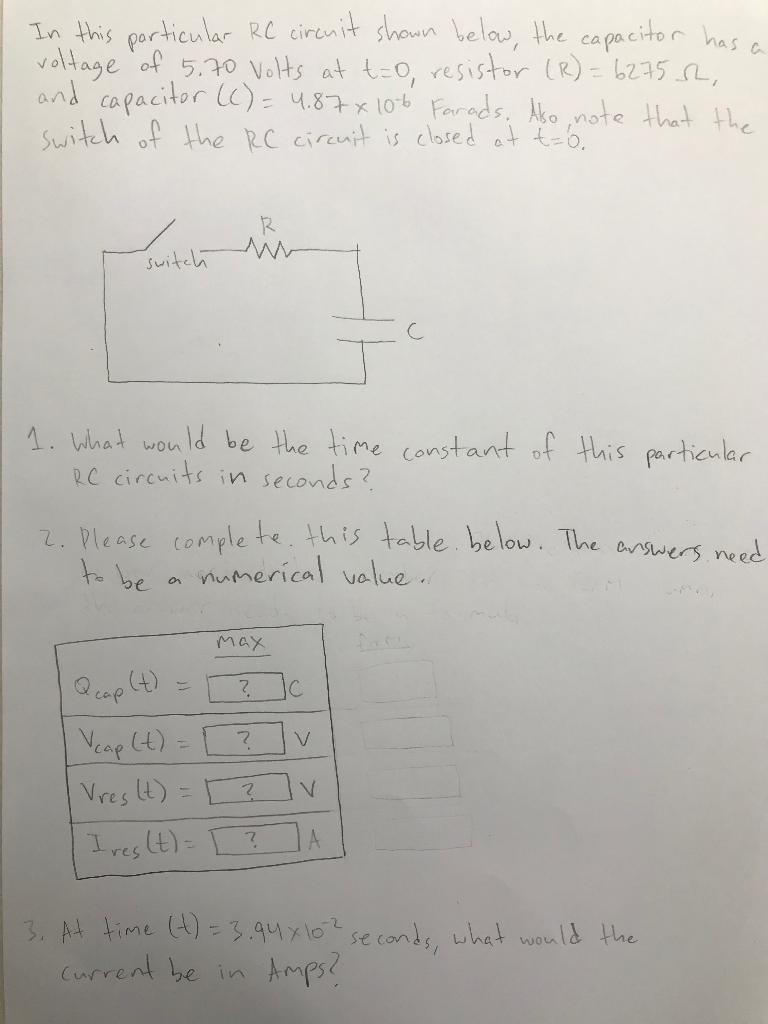 In this particular RC circuit shown below, the capacitor has a
voltage of 5.70 Volts at t=0, resistor (R) = 6275 Ω,
and capacitor (C) = 4.87 x 10^-6 Farads. Also, note that the
switch of the RC circuit is closed at t=0.
R
switch
C
1. What would be the time constant of this particular
RC circuits in seconds?
2. Please complete this table below. The answers need
to be a numerical value.
max
Qcap(t) = ? C
Vcap(t) = ? V
Vres(t) = ? V
Ires(t) = ? A
3. At time (t) = 3.94x10^-2 seconds, what would the
current be in Amps?